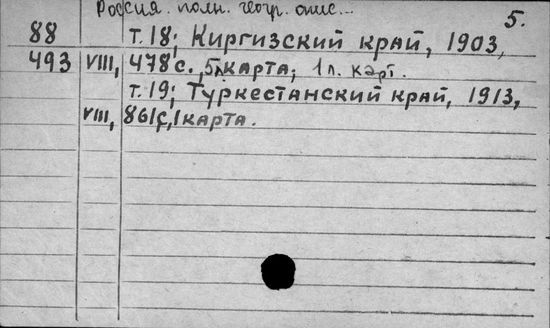 Россия. полн. геогр. опис...
5.
88 т. 18; Киргизский край, 1903,
493 VIII, 478 с., 5 л. карта; 1 л. карт.
т. 19; Туркестанский край, 1913,
VIII, 861 с, 1 карта.